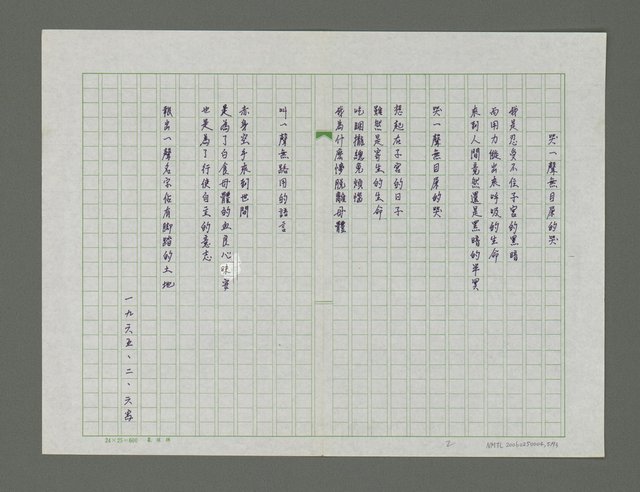 哭一聲無目屎的哭
我是忍受不住子宮的黑暗
而用力縱出來呼吸的生命
來到人間竟然還是黑暗的半黑
哭一聲無目屎的哭
想起在子宮的日子
雖然是寄生的生命
吃睏攏總免煩惱
我為什麼慘脫離母體
叫一聲無路用的語言
赤身空手來到世間
是為了白食母體的血良心味害
也是為了行使自主的意志
報出一聲名字依有腳踏的土地
一九六五、二、六
24×25=600
2
NMTL 20060250004